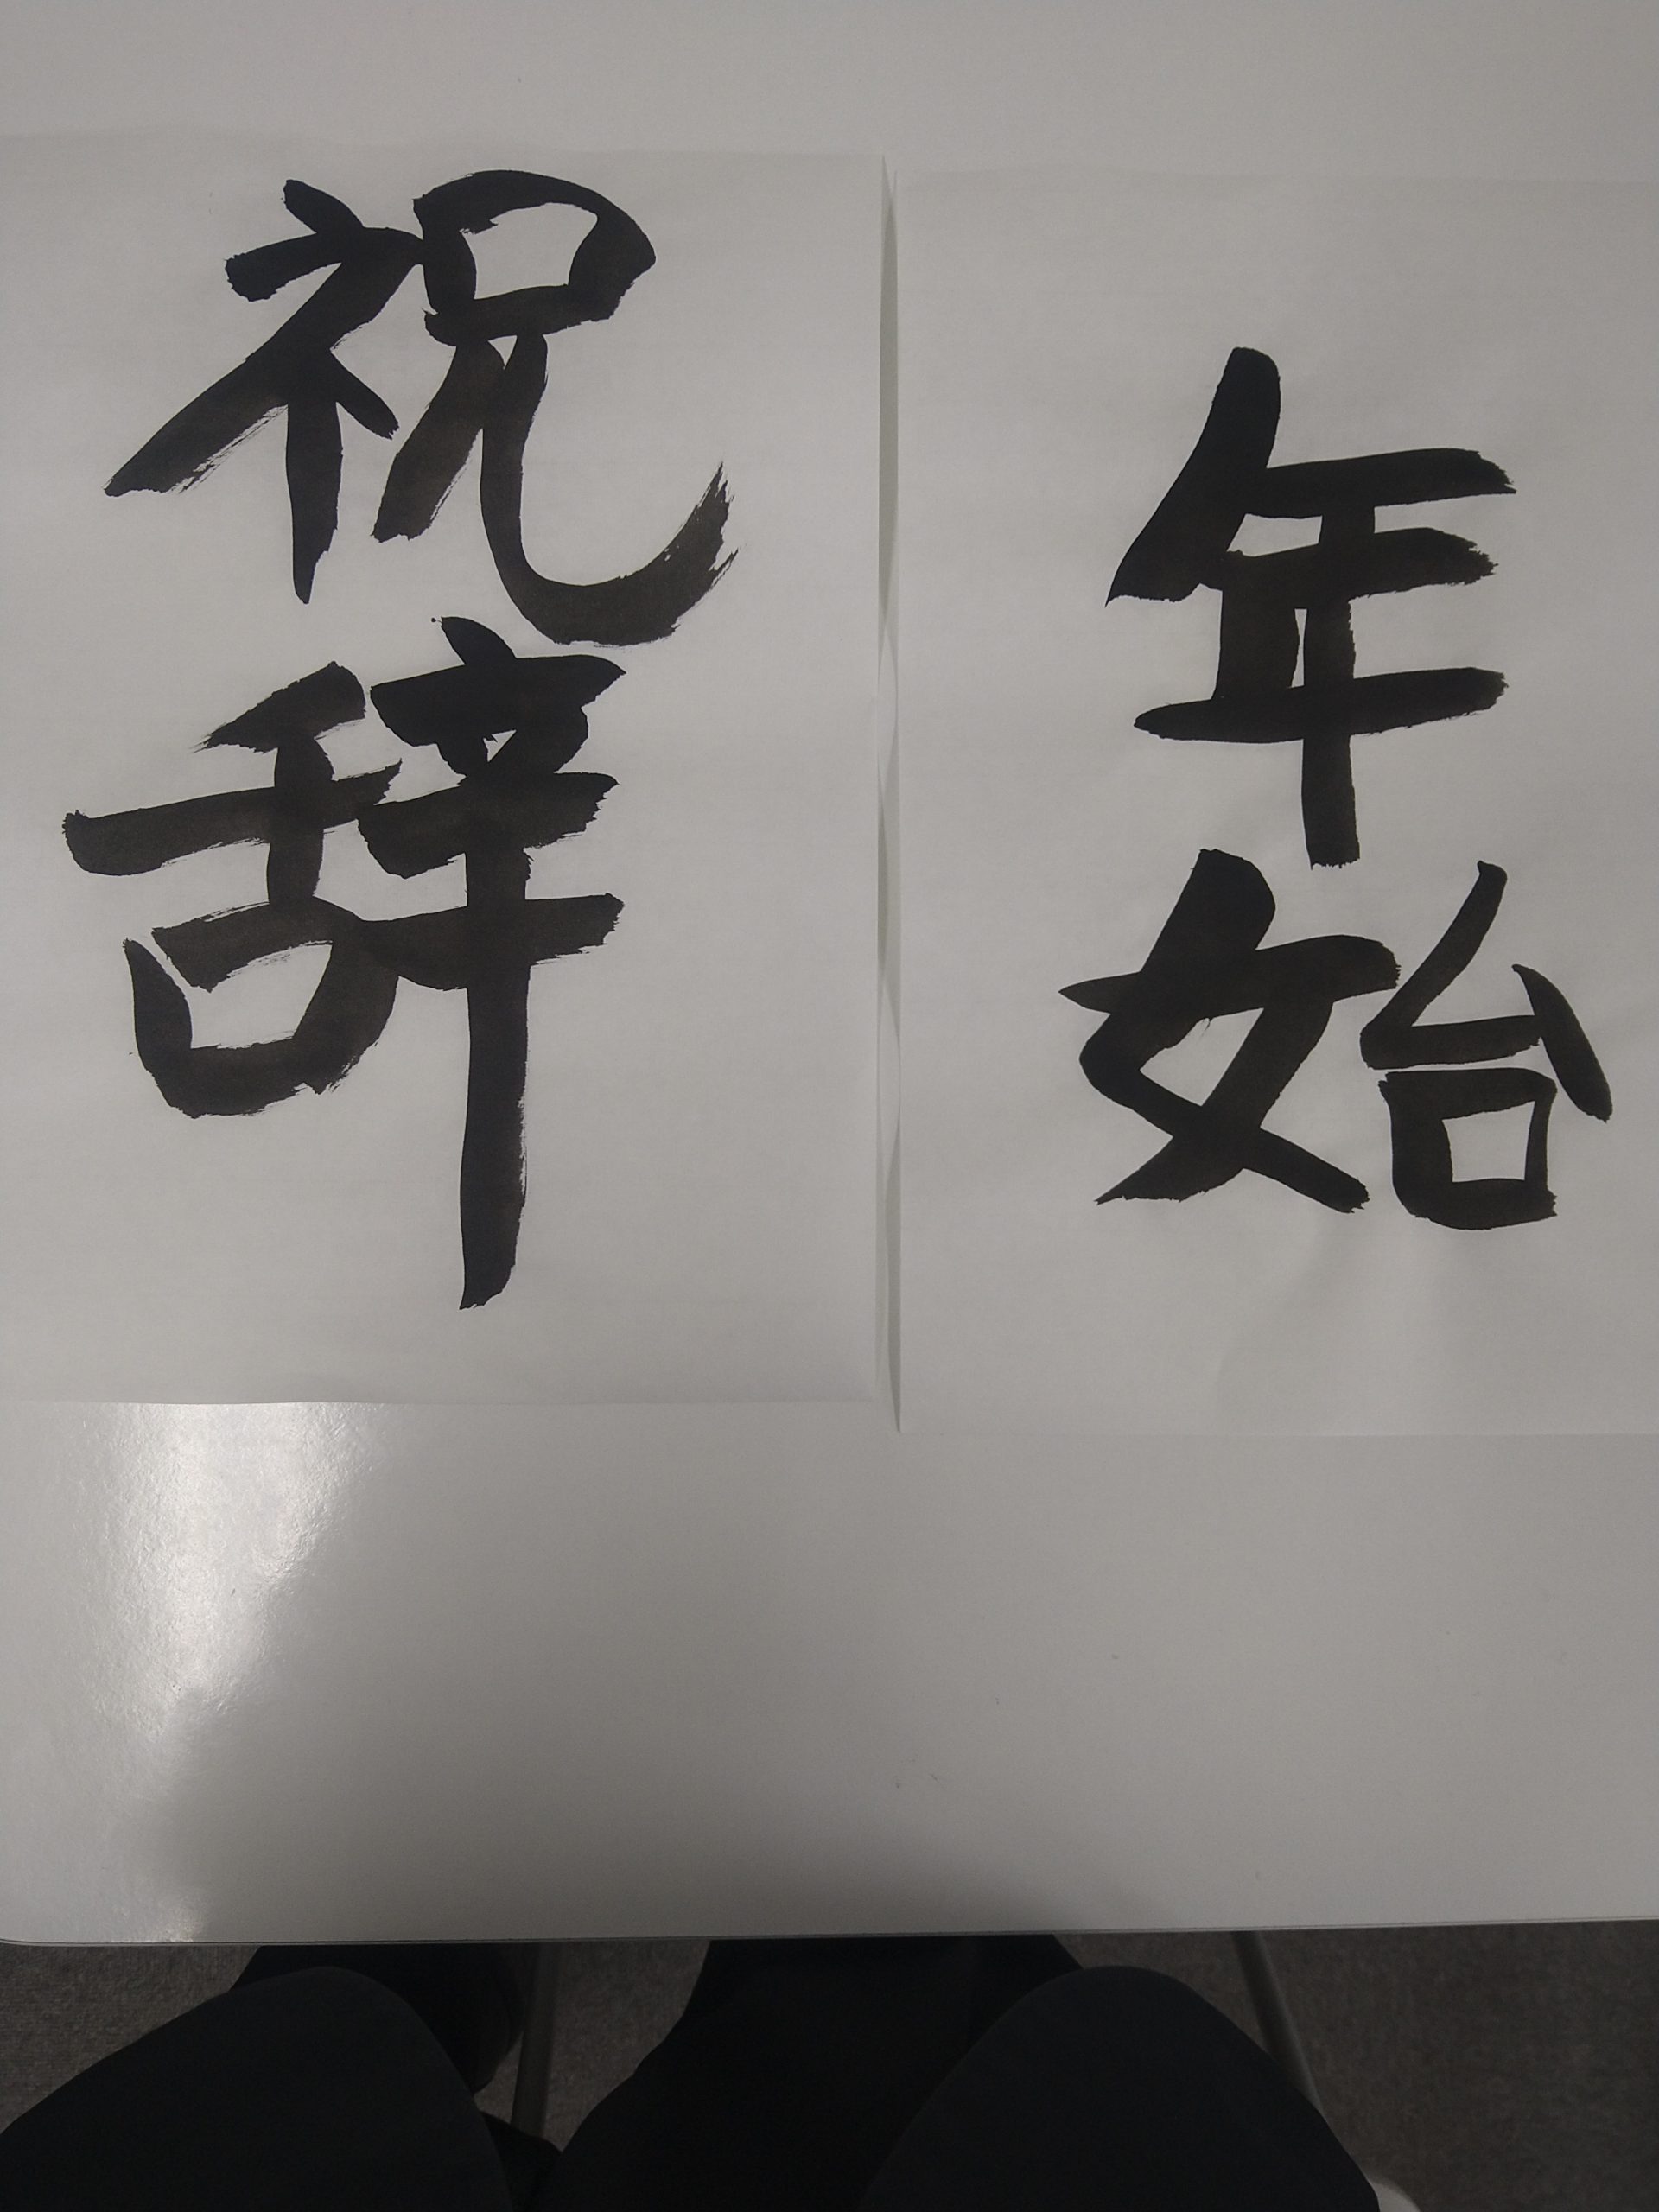 年始
祝辞